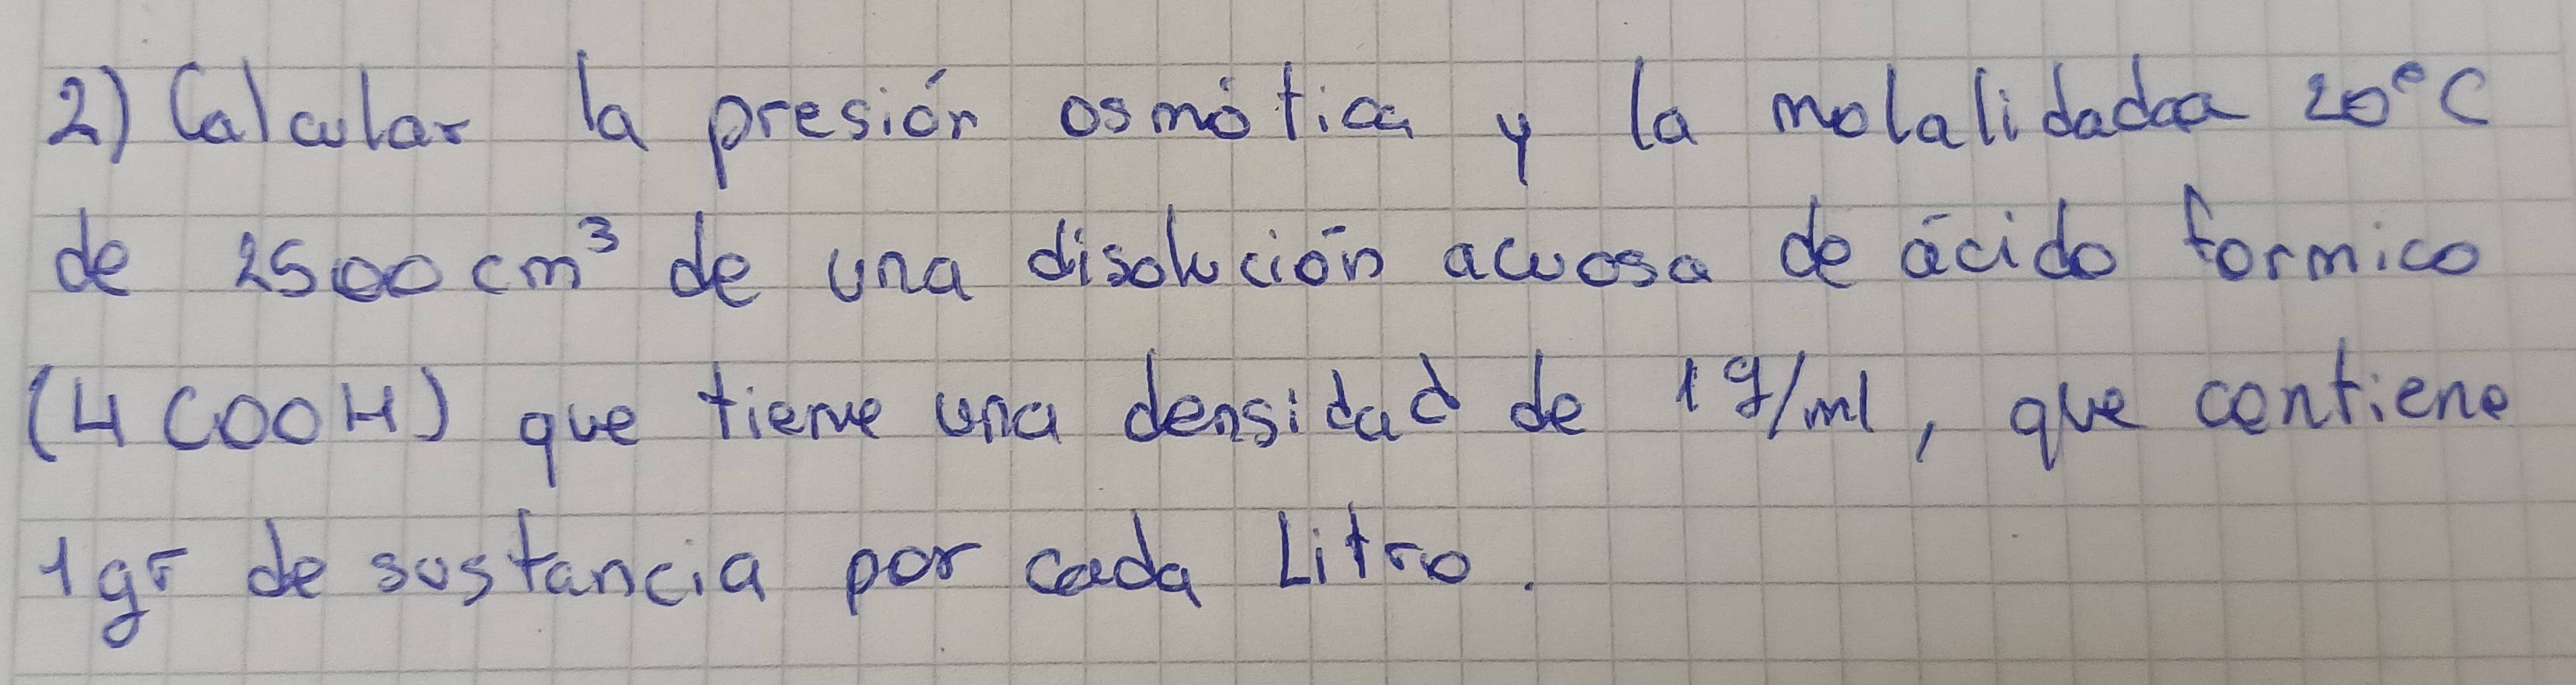 2) Calcular la presión osmótica y la molalidadaa 20°C
de 2500 cm³ de una disolución acuosa de ácido formico
(HCOOH) que tiene una densidad de 1g/ml, que contiene
1gr de sustancia por cada Litro.